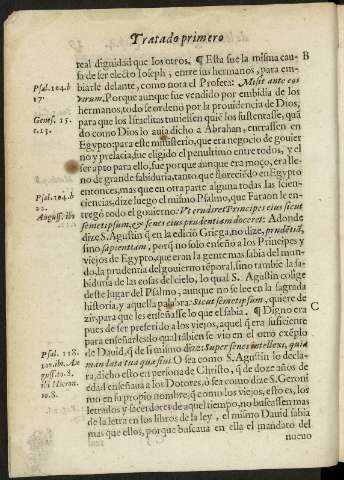 Tratado primero
real dignidad que los otros. ¶ Esta fue la misma cau-
B
sa de ser electo Ioseph, entre sus hermanos, para em-
biarle delante, como nota el Profeta: Misit ante eos
Psal. 104. b
17
virum. Porque aunque fue vendido por embidia de los
hermanos, todo se ordenò por la prouidencia de Dios,
para que los Israelitas tuuiessen quiẽ los sustentasse, quã
Genes. 15.
do como Dios lo auia dicho a Abrahan, entrassen en
c. 13.
Egypto: para este ministerio, que era negocio de gouier
no y prelacia, fue eligido el penultimo entre todos, y el
ser apto para ello, fue porque aunque era moço, era lle-
no de grande sabiduria, tanto que floreciẽdo en Egypto
entonces, mas que en otra parte alguna todas las scien-
cias, dize luego el mismo Psalmo, que Faraon le en-
Psal. 104. b
22.
tregó todo el gouierno: Vt erudiret Principes eius sicut
August. ibi
semetipsum, & senes eius prudentiam doceret: Adonde
dize S. Agustin q̃ en la edició Griega, no dize, prudẽtiã,
sino sapientiam, porq̃ no solo enseñó a los Principes y
viejos de Egypto, que eran la gente mas sabia del mun-
do, la prudencia del gouierno tẽporal, sino tambiẽ la sa-
biduria de las cosas del cielo, lo qual S. Agustin colige
deste lugar del Psalmo, aunque no se lee en la sagrada
historia, y aquella palabra: Sicut semetipsum, quiere de-
zir, para que les enseñasse lo que el sabia. ¶ Digno era
C
pues de ser preferido a los viejos, aquel q̃ era suficiente
para enseñarles: lo qual tãbien se vio en el otro exẽplo
de Dauid, q̃ de si mismo dize: Super senes intellexi, quia
Psal. 118.
mandata tua quæsiui. O sea como S. Agustin lo decla-
ra, dicho esto en persona de Christo, q̃ de doze años de
edad enseñaua a los Dotores, ò sea como dize S. Geroni
ibi Hieron.
mo en su propio nombre, q̃ como los viejos, esto es, los
to. 8.
letrados y sacerdotes de aquel tiempo, no buscassen mas
de la letra en los libros de la ley, el mismo Dauid sabia
mas que ellos, porque buscaua en ella el mandato del
nueuo